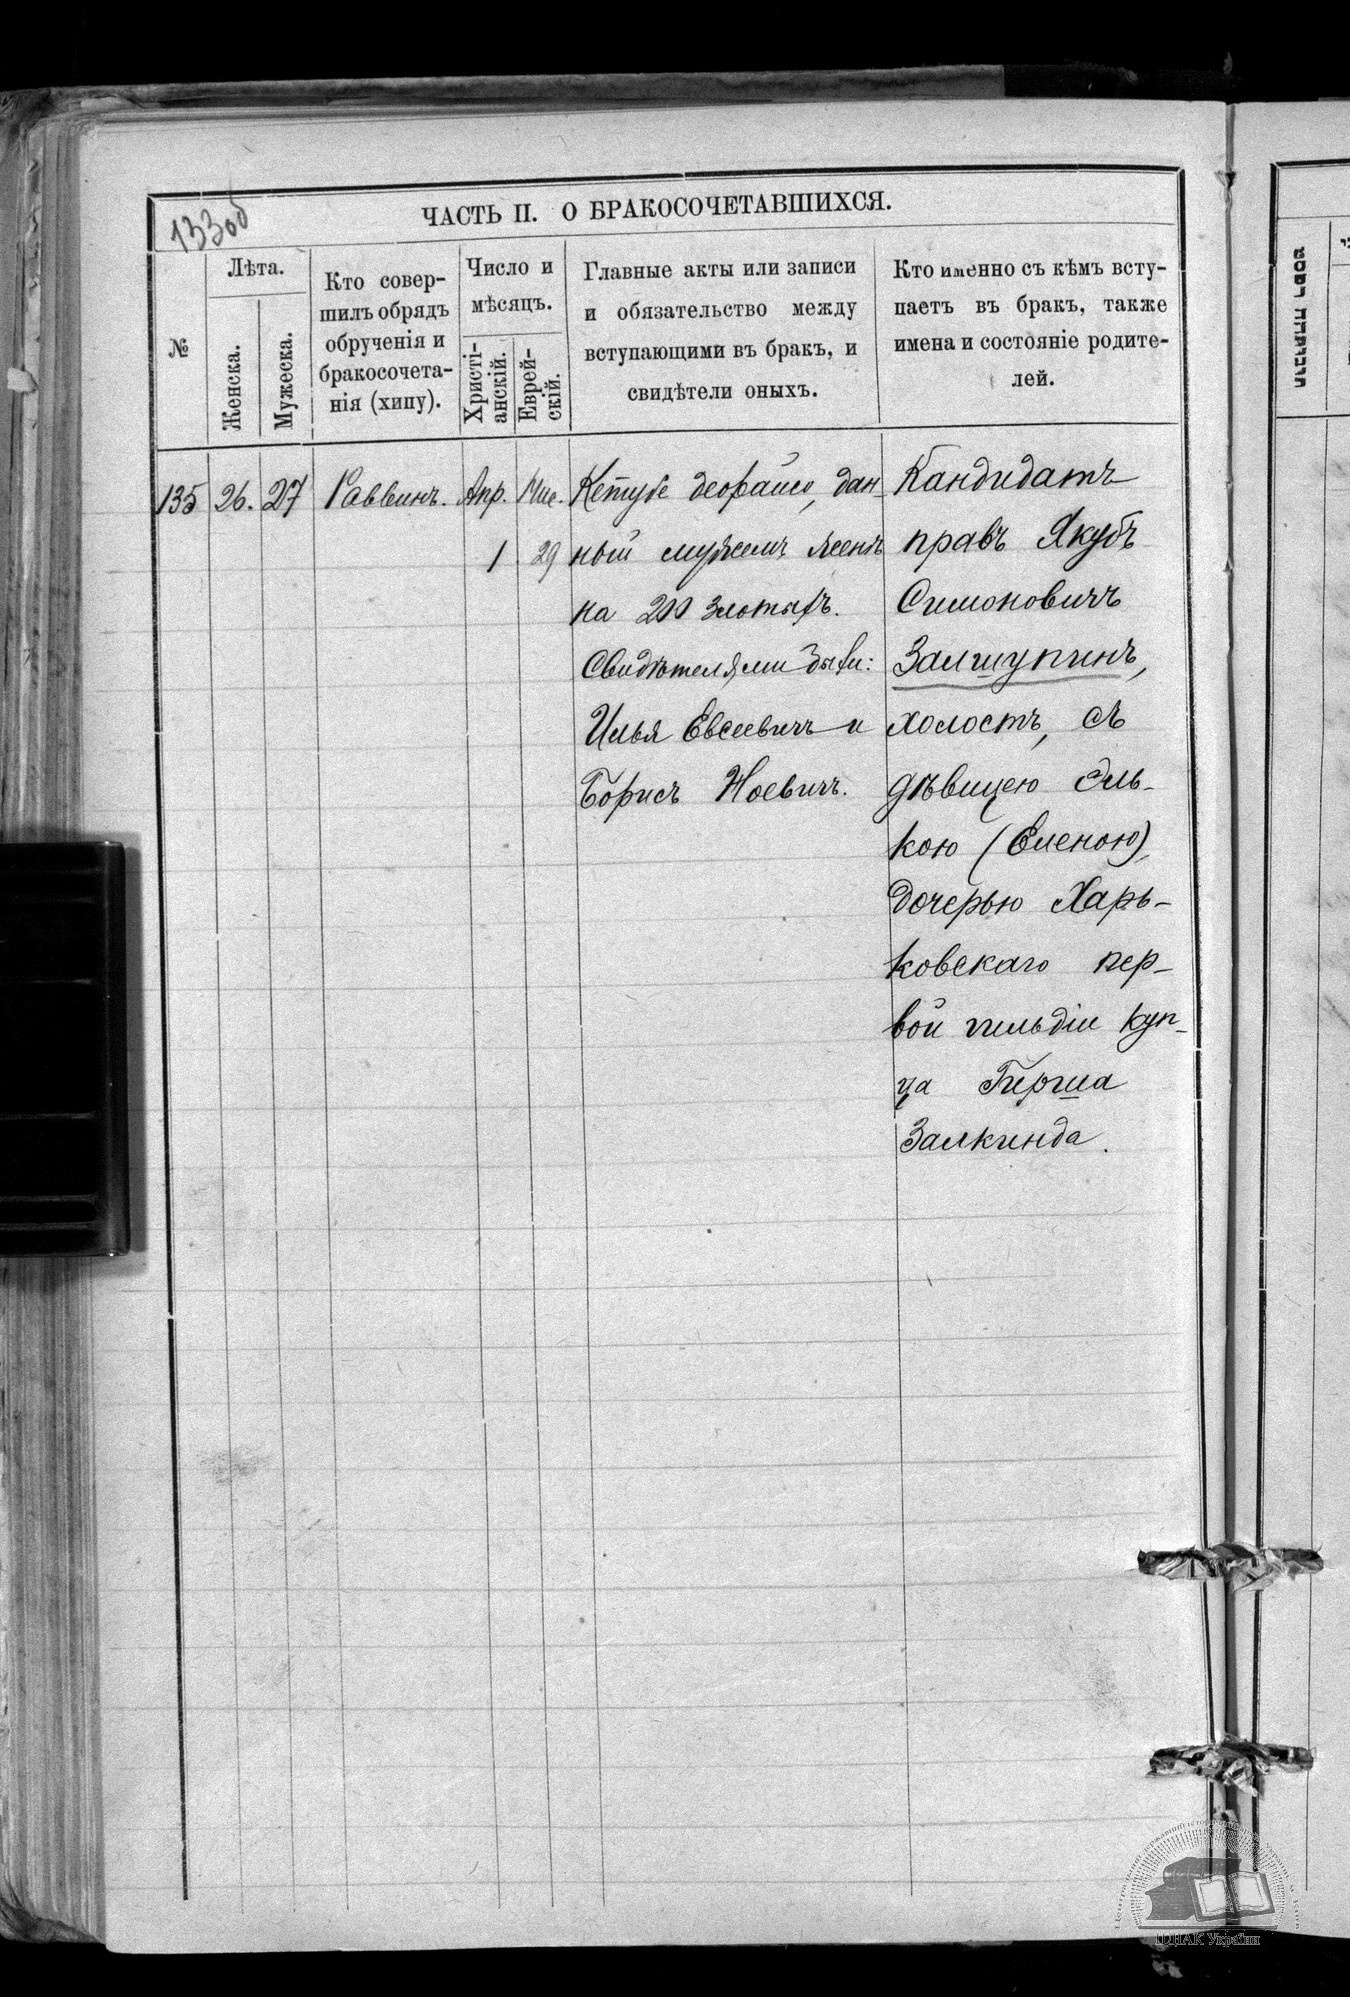 133об
ЧАСТЬ II. О БРАКОСОЧЕТАВШИХСЯ.
№
Лѣта.
Женска.
Мужеска.
Кто совер-
шилъ обрядъ
обрученія и
бракосочета-
нія (хипу).
Число и
мѣсяцъ.
Христі-
анскій.
Еврей-
скій.
Главные акты или записи
и обязательство между
вступающими въ бракъ, и
свидѣтели оныхъ.
Кто именно съ кѣмъ всту-
паетъ въ бракъ, также
имена и состояніе родите-
лей.
135
26.
27
Раввинъ.
Апр.
1
29
Кетубе деорайсо, дан-
ный мужемъ женѣ
на 200 злотыхъ.
Свидѣтелями были:
Илья Евсеевичъ и
Борисъ Ноевичъ.
Кандидатъ
правъ Якубъ
Симоновичъ
Залшупинъ,
холостъ, съ
дѣвицею Эль-
кою (Еленою),
дочерью Харь-
ковскаго пер-
вой гильдіи куп-
ца Гирша
Залкинда.
ЦДІАК України